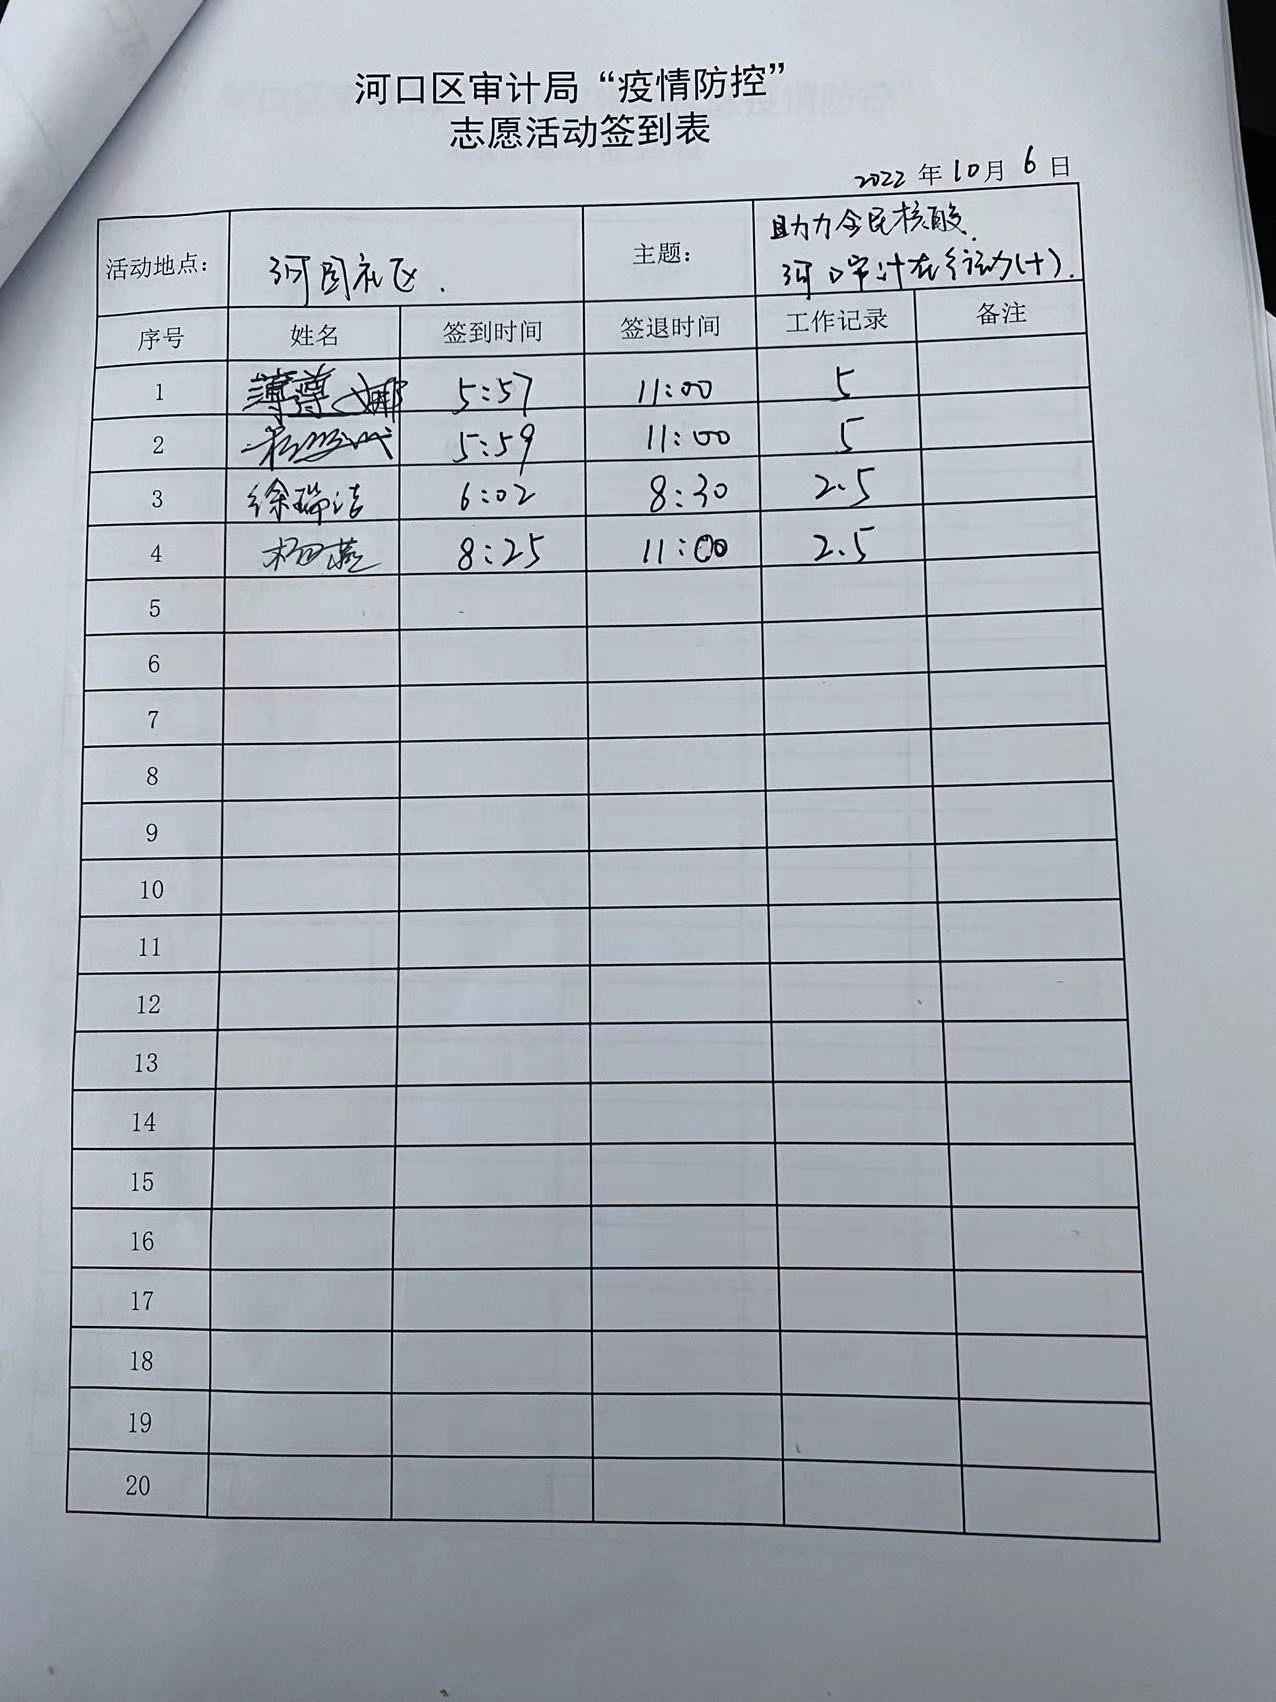 河口区审计局“疫情防控”
志愿活动签到表
2022年10月6日
活动地点： 河园社区. 主题： 助力全民核酸,
河口审计在行动(十).
序号 姓名 签到时间 签退时间 工作记录 备注
1 5:57 11:00 5
2 5:59 11:00 5
3 徐瑞洁 6:02 8:30 2.5
4 杨燕 8:25 11:00 2.5
5
6
7
8
9
10
11
12
13
14
15
16
17
18
19
20